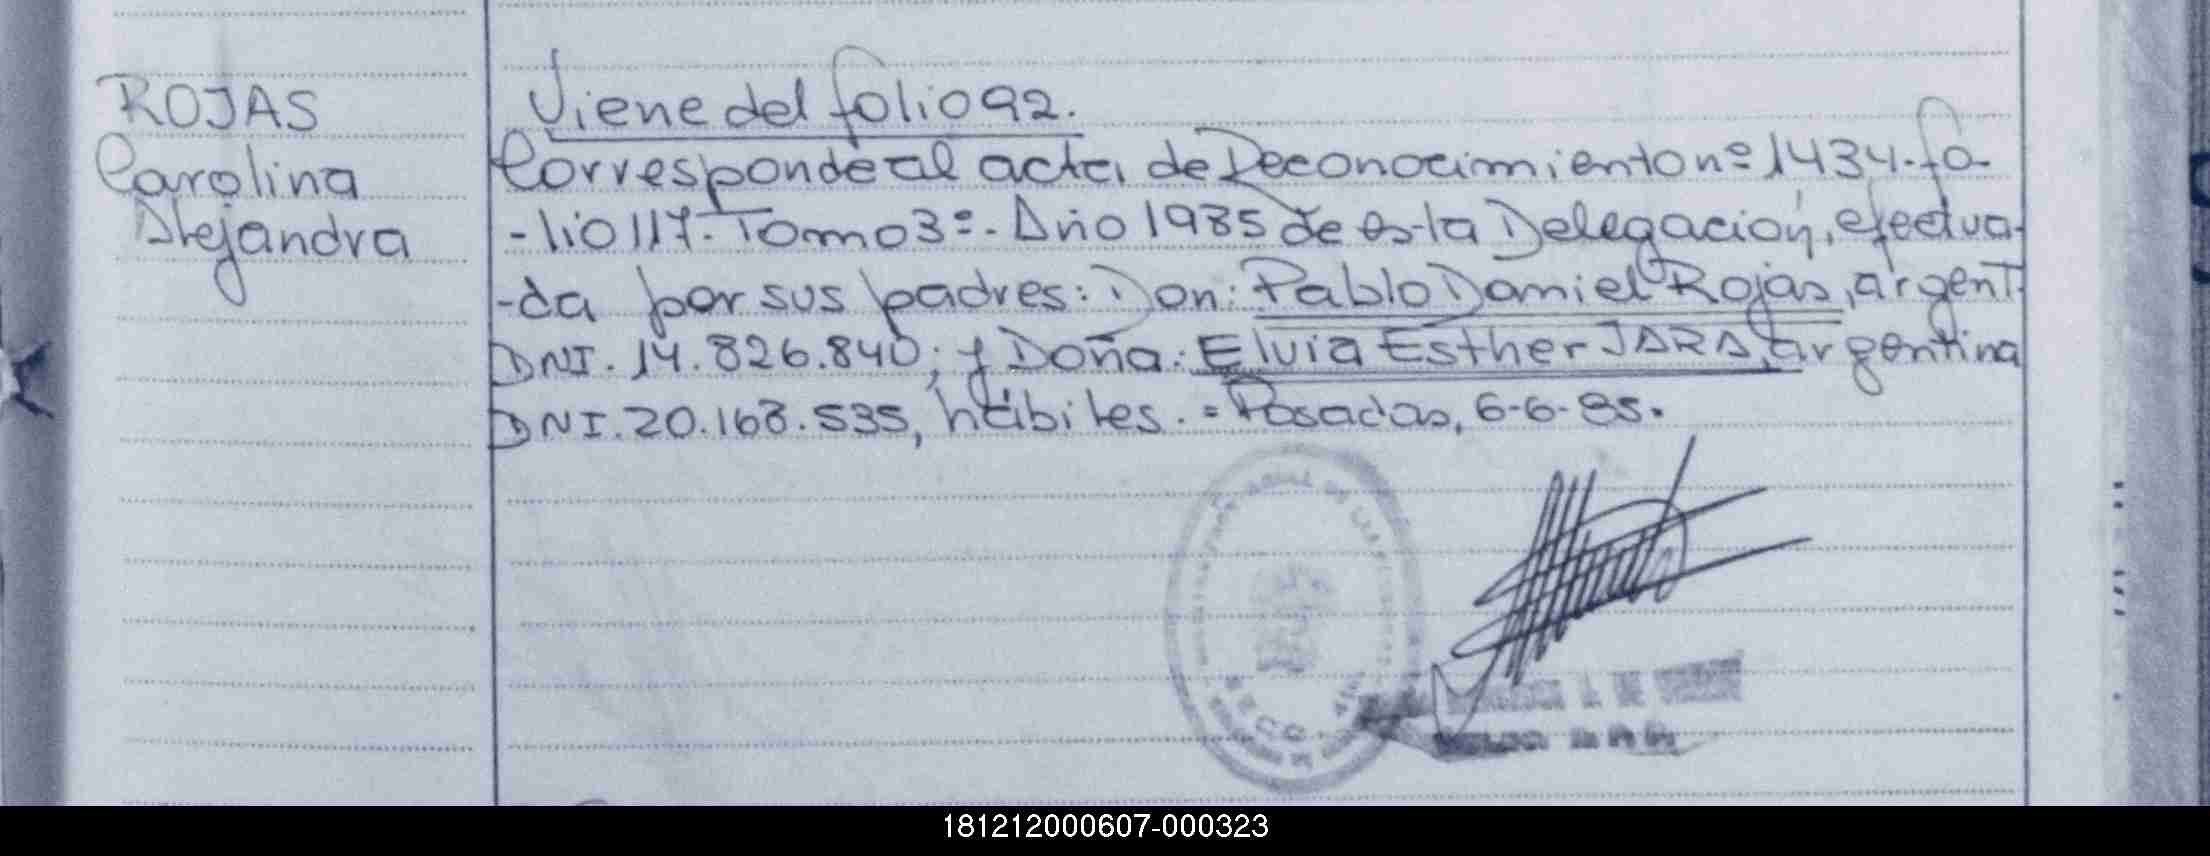 ROJAS
Carolina
Alejandra
Viene del folio 92.
Corresponde al acta de Reconocimiento nº 1434. fo-
-lio 117. Tomo 3º. Año 1985 de esta Delegación, efectua-
-da por sus padres: Don: Pablo Daniel Rojas, argent.
DNI. 14.826.840; y Doña: Elvia Esther JARA, argentina
DNI. 20.168.535, hábiles. = Posadas, 6-6-85.
181212000607-000323